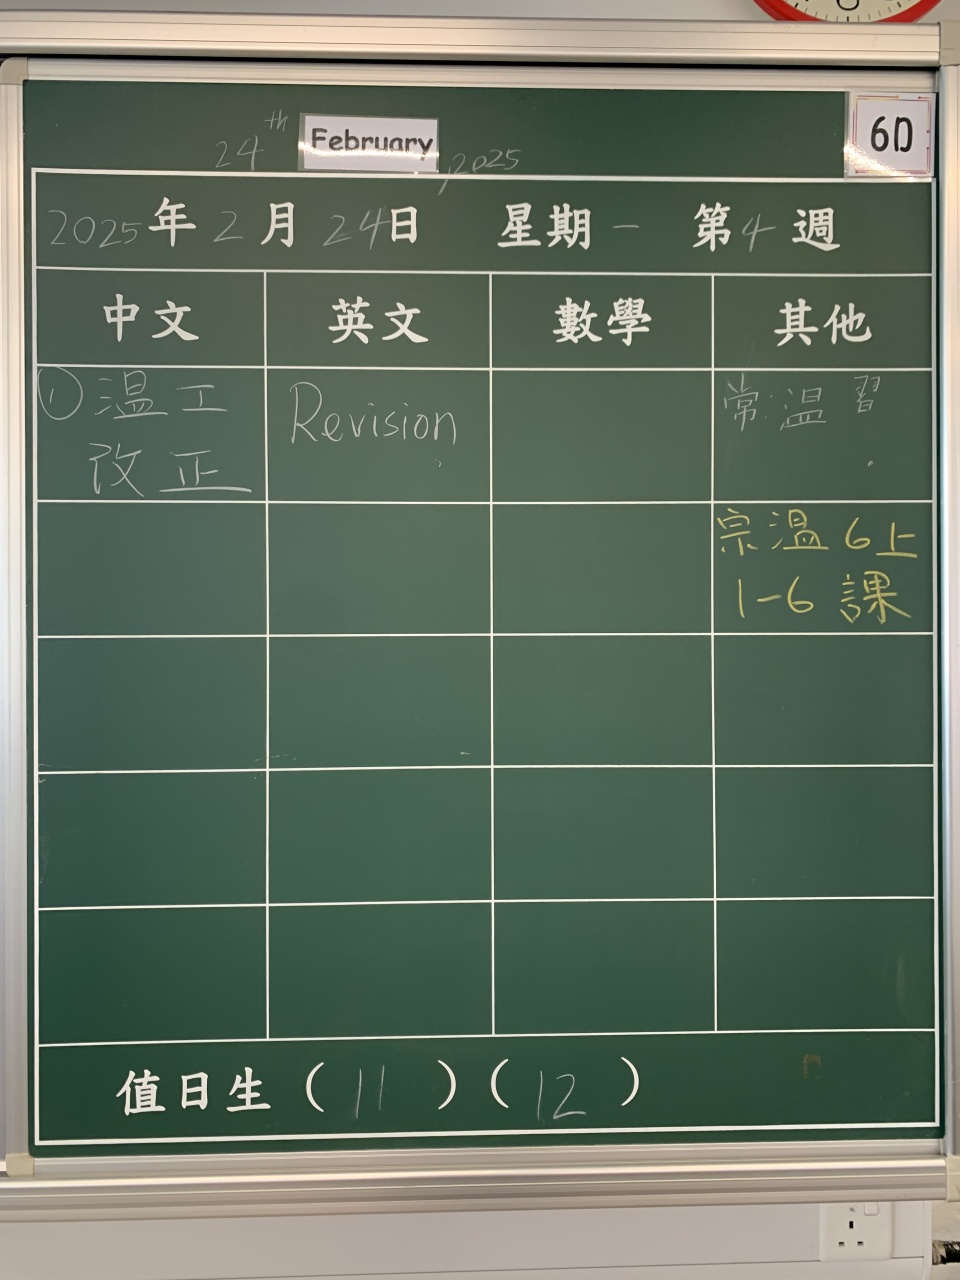 24th February, 2025
6D
2025年2月24日 星期一 第4週
中文 英文 數學 其他
①溫工
改正
Revision
常:溫習
宗溫6上
1-6課
值日生(11)(12)